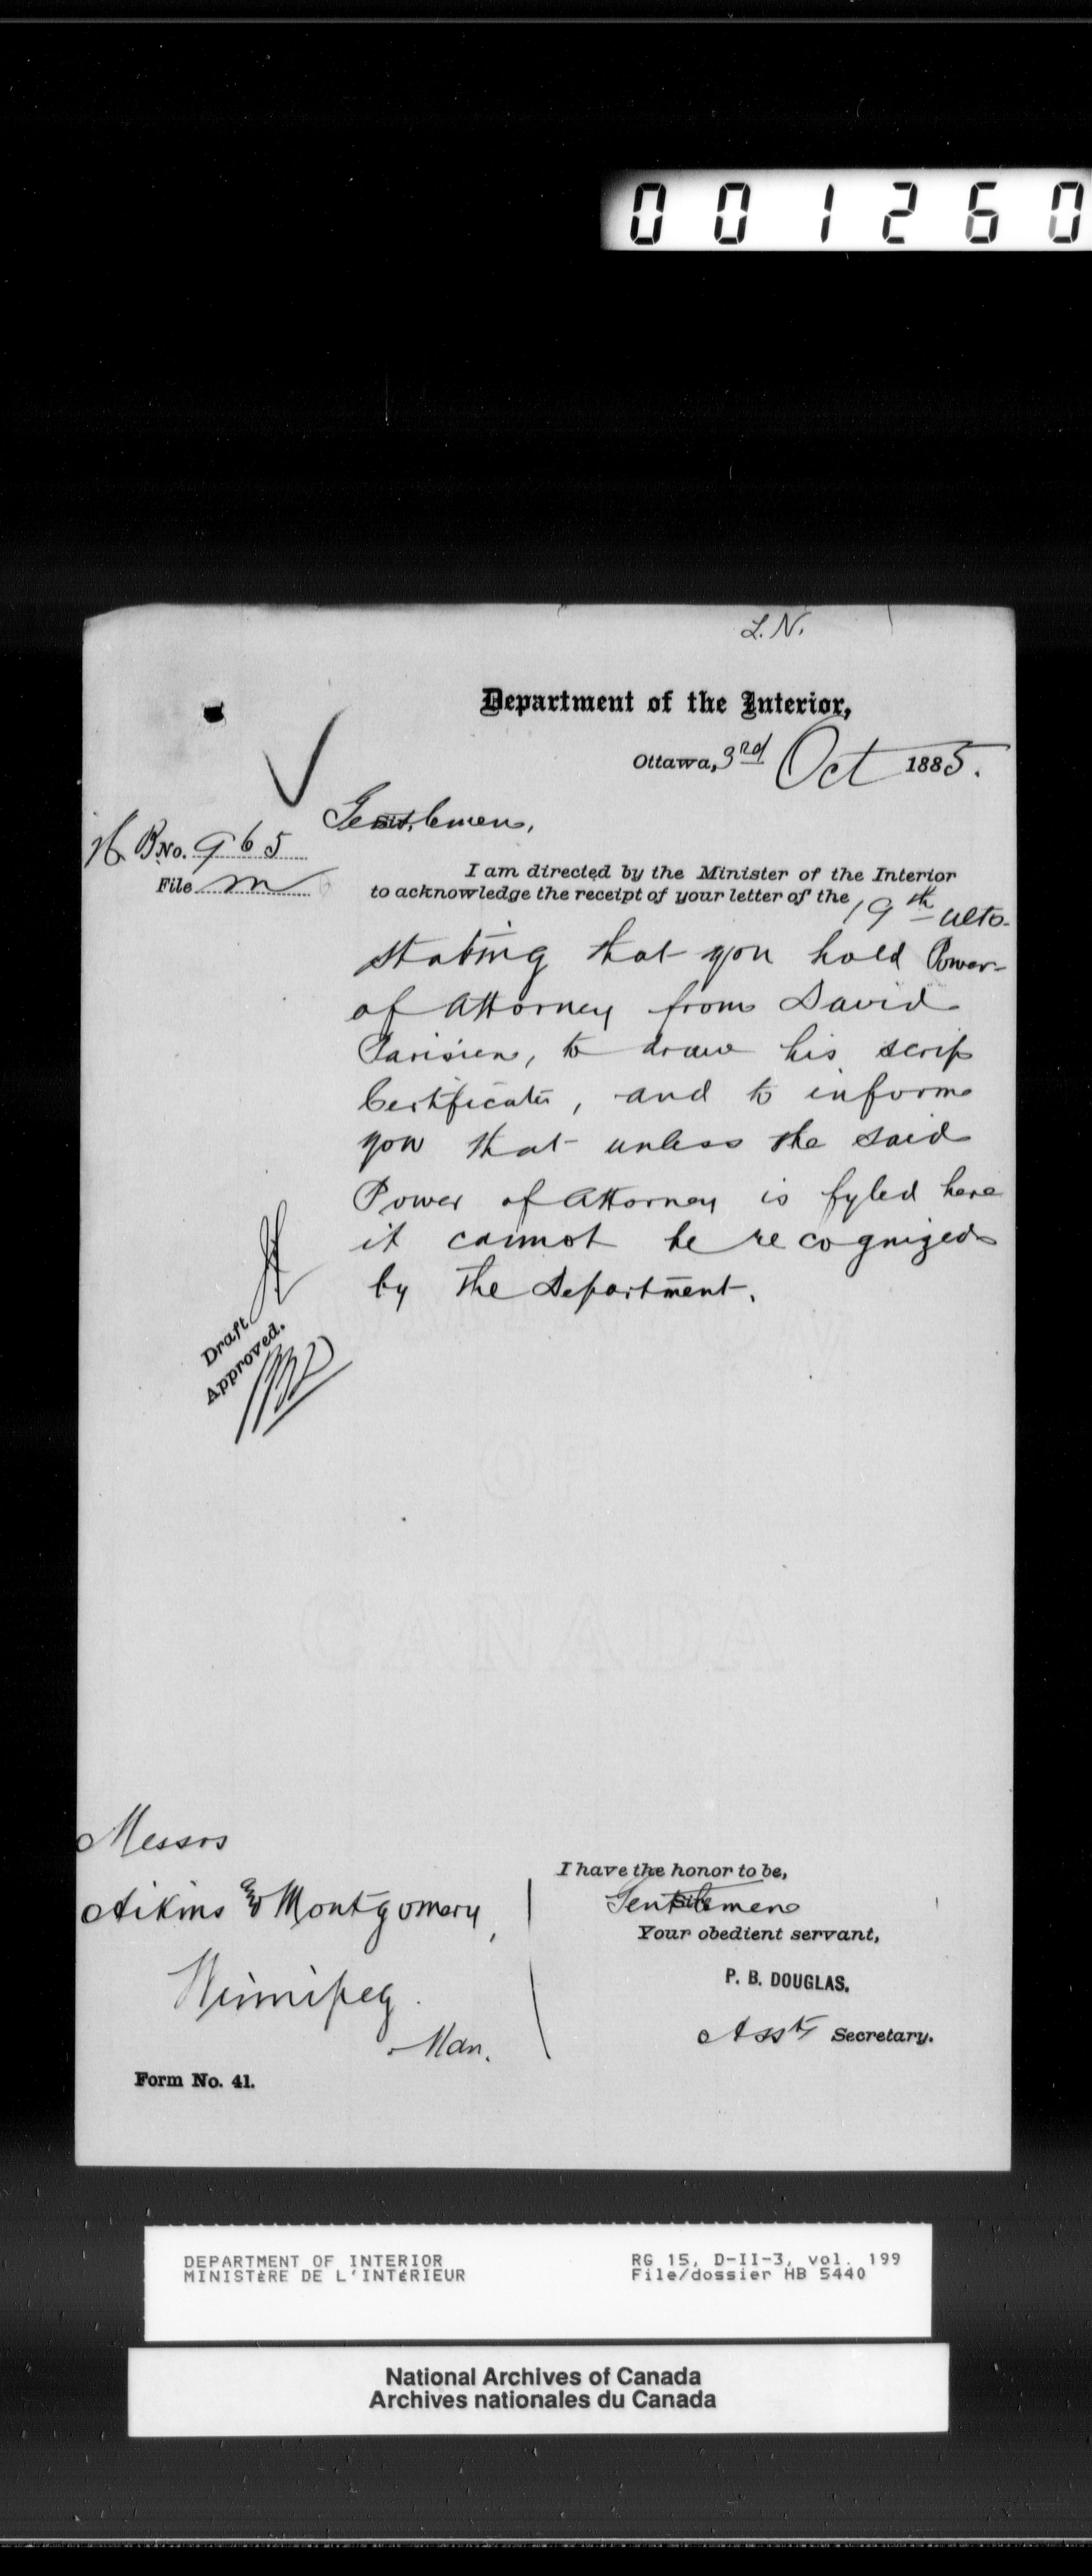 001260
L. N.
Department of the Interior,
Ottawa, 3rd Oct 1885.
Gentlemen,
H B No. 965
File m
I am directed by the Minister of the Interior
to acknowledge the receipt of your letter of the 19th ulto.
stating that you hold Power
of Attorney from David
Parisien, to draw his scrip
Certificate, and to inform
you that unless the said
Power of Attorney is fyled here
it cannot be recognized
by the Department.
Draft
Approved.
Messrs
Aikins & Montgomery,
Winnipeg.
Man.
I have the honor to be,
Gentlemen
Your obedient servant,
P. B. DOUGLAS.
Asst Secretary.
Form No. 41.
DEPARTMENT OF INTERIOR
MINISTÈRE DE L'INTÉRIEUR
RG 15, D-II-3, vol. 199
File/dossier HB 5440
National Archives of Canada
Archives nationales du Canada